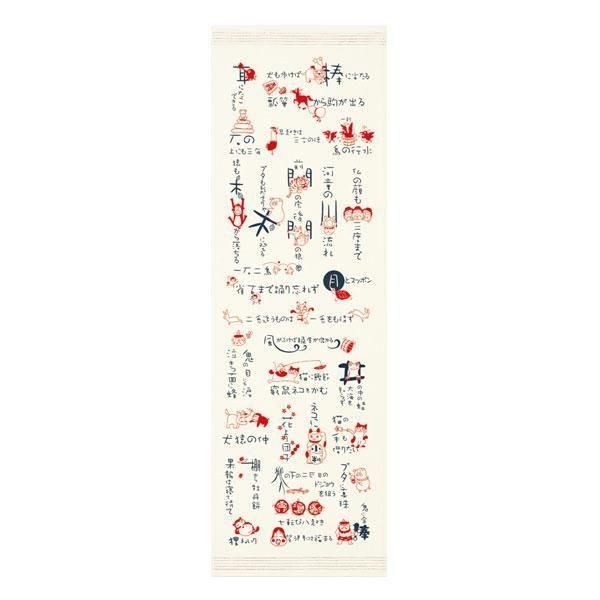 耳にたこができる
犬も歩けば棒に当たる
瓢箪から駒が出る
石の上にも三年
早起きは三文の徳
烏の行水
猿も木から落ちる
ブタもおだてりゃ木に登る
前門の虎後門の狼
河童の川流れ
仏の顔も三度まで
一石二鳥
月とスッポン
雀百まで踊り忘れず
二兎追うものは一兎をも得ず
風がふけば桶屋が儲かる
鬼の目に涙
泣き面に蜂
猫に鰹節
窮鼠ネコをかむ
井の中の蛙大海をしらず
犬猿の仲
花より団子
ネコに小判
猫の手も借りたい
果報は寝て待て
棚から牡丹餅
柳の下の二匹目のドジョウを狙う
ブタに真珠
七転び八起き
狸ねいり
笑う門には福来る
鬼に金棒